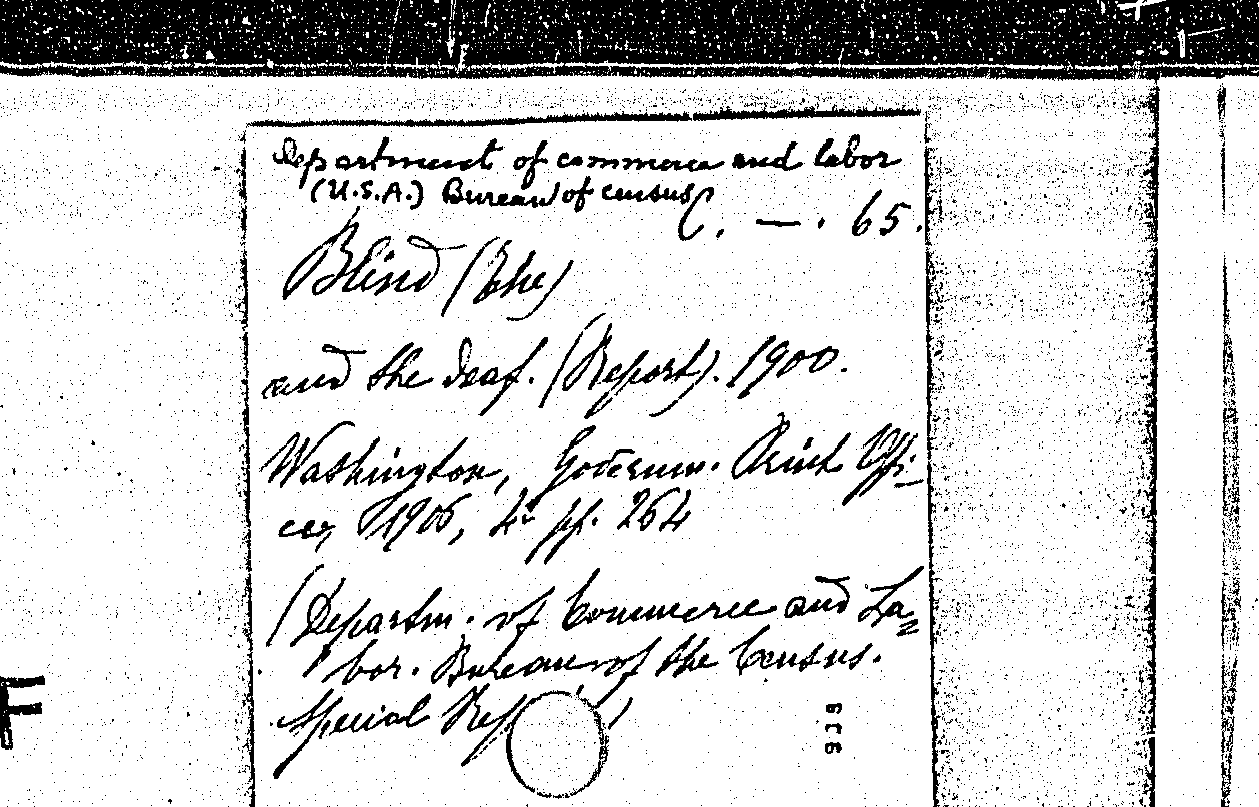 Department of commerce and labor
(U.S.A.) Bureau of census
C. — . 65.
Blind (The)
and the deaf. (Report). 1900.
Washington, Governm. Print Offi-
ce, 1906, 4° pp. 264
(Departm. of Commerce and La=
bor. Bureau of the Census.
Special Rep